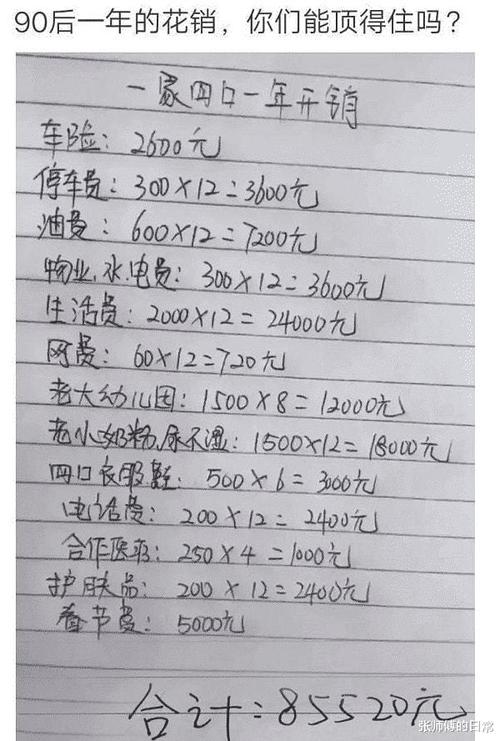 90后一年的花销，你们能顶得住吗？
一家四口一年开销
车险：2600元
停车费：300×12=3600元
油费：600×12=7200元
物业,水.电费：300×12=3600元
生活费：2000×12=24000元
网费：60×12=720元
老大幼儿园：1500×8=12000元
老小奶粉,尿不湿：1500×12=18000元
四口衣服鞋：500×6=3000元
电话费：200×12=2400元
合作医疗：250×4=1000元
护肤品：200×12=2400元
春节费：5000元
合计：85520元
张师傅的日常